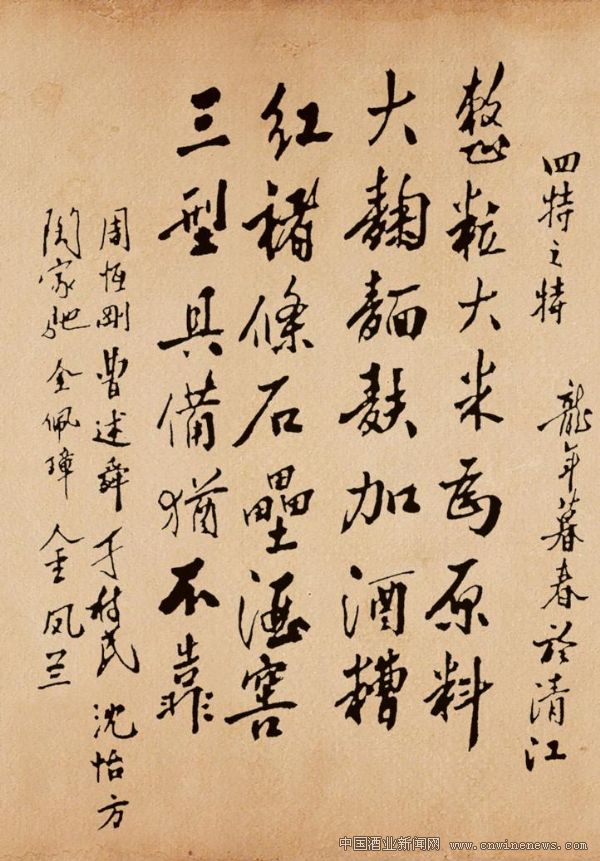 四特之特 龍年暮春於清江
整粒大米为原料
大麯麵麩加酒糟
红褚條石壘酒窖
三型具備猶不靠
周恆剛 曹述舜 于树民 沈怡方
陶家驰 全佩璋 金凤兰
中国酒业新闻网 www.cnwinenews.com